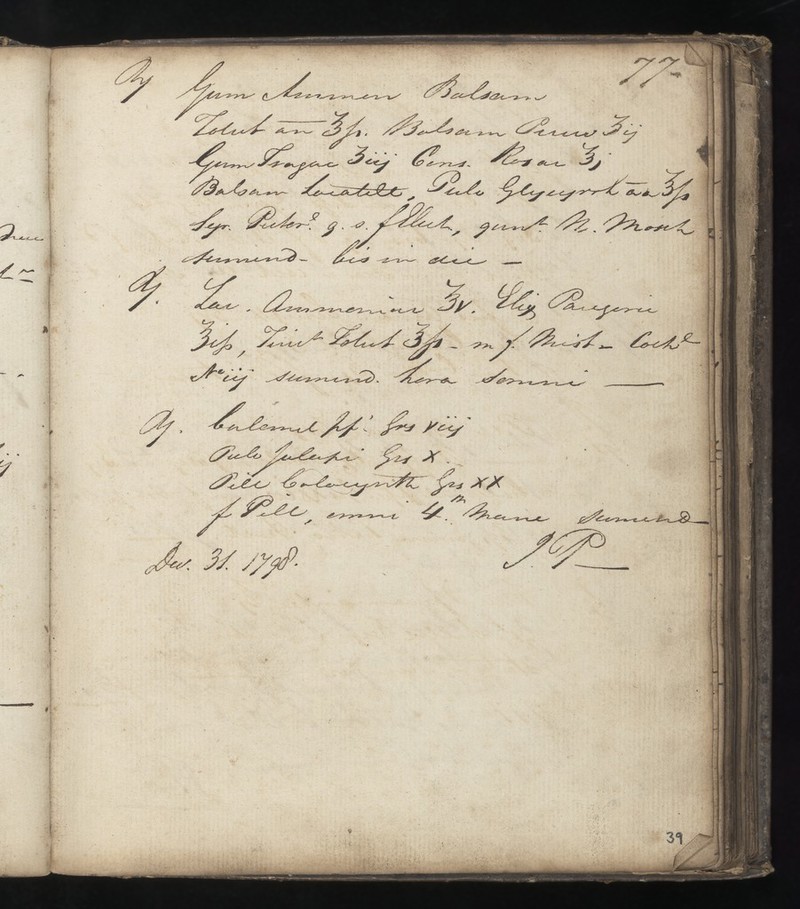 77
℞ Gum Ammon Balsam
Tolut an ʒſs. Balsam Peruv ʒij
Gum Tragac ʒiij Cons. Rosae ℥j
Balsam Locatell, Pulv Glycyrrh aa ℥ſs
Syr. q. s. f Elect, quant N. Mosch
sumend - bis in die —
℞. Lac. Ammoniac ℥v. Elix Paregoric
℥iſs, Tinct Tolut ℥ſs - m f. Mist - Cochl
No iij sumend. hora somni —
℞. Calomel pp. Grs viij
Pulv Jalapi Grs X.
Pill Colocynth Grs XX
f Pill, omni 4.m Mane sumend
Dec. 31. 1798. J. P—
39